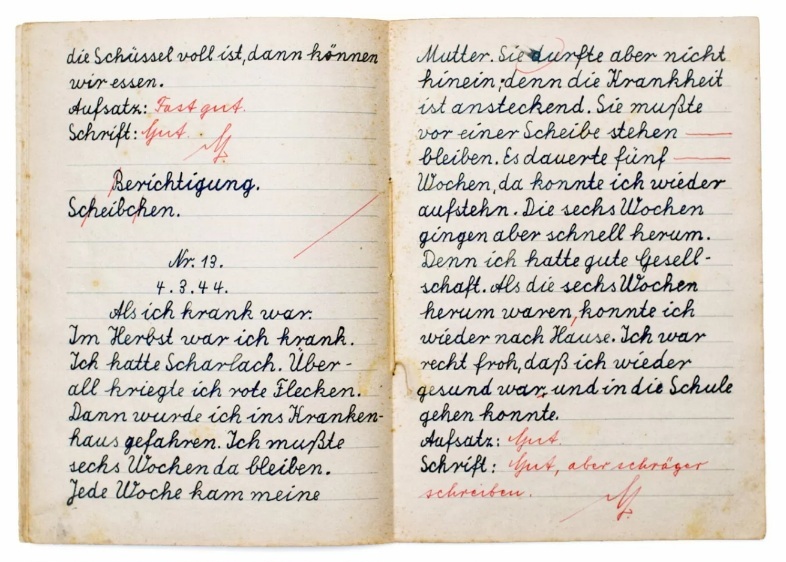 die Schüssel voll ist, dann können
wir essen.
Aufsatz: Fast gut.
Schrift: Gut.
Berichtigung.
Scheibchen.
Nr. 13.
4.3.44.
Als ich krank war.
Im Herbst war ich krank.
Ich hatte Scharlach. Über-
all kriegte ich rote Flecken.
Dann wurde ich ins Kranken-
haus gefahren. Ich mußte
sechs Wochen da bleiben.
Jede Woche kam meine
Mutter. Sie durfte aber nicht
hinein; denn die Krankheit
ist ansteckend. Sie mußte
vor einer Scheibe stehen
bleiben. Es dauerte fünf
Wochen, da konnte ich wieder
aufstehn. Die sechs Wochen
gingen aber schnell herum.
Denn ich hatte gute Gesell-
schaft. Als die sechs Wochen
herum waren, konnte ich
wieder nach Hause. Ich war
recht froh, daß ich wieder
gesund war, und in die Schule
gehen konnte.
Aufsatz: Gut.
Schrift: Gut, aber schräger
schreiben.